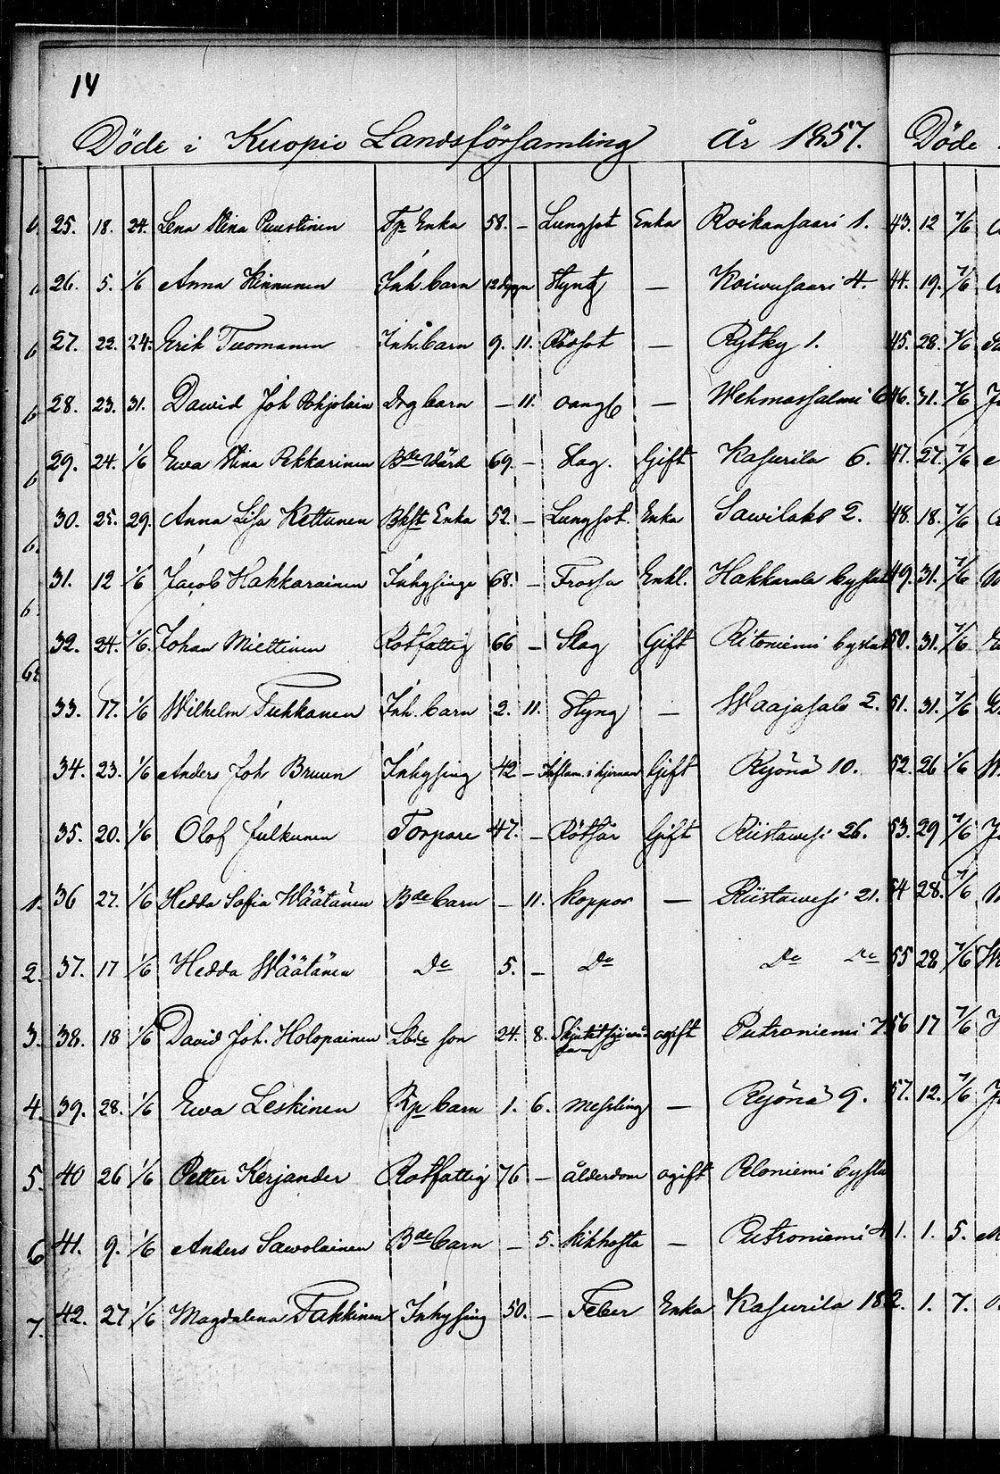 14
Döde i Kuopio Landsförsamling År 1857.
25. 18. 24. Lena Stina Puustinen Tp Enka 58. – Lungsot Enka Roikansaari 1.
26. 5. 1/6 Anna Kinnunen Inh. barn 12 dygn Styng — Koiwusaari 4
27. 22. 24. Erik Tuomanen Inh. barn 9. 11. Rödsot — Rytky 1.
28. 23. 31. Dawid Joh Pohjolain Drg barn – 11. oangb — Wehmassalmi 6
29. 24. 1/6 Ewa Stina Pekkarinen Bde Wärd 69. – Slag. Gift Kasurila 6.
30. 25. 29. Anna Lisa Kettunen Bkst Enka 52. – Lungsot. Enka Sawilaks 2.
31. 12 1/6 Jacob Hakkarainen Inhysinge 68. – Frossa Enkl. Hakkarala bystat
32. 24. 1/6. Johan Miettinen Rotfattig 66 – Slag Gift Ritoniemi bystat
33. 17. 1/6 Wilhelm Tukkanen Inh. barn 2. 11. Styng — Waajasalo 2.
34. 23. 1/6 Anders Joh Bruun Inhysing 42 – Inflam. i hjernan Gift Ryönä 10.
35. 20. 1/6 Olof Julkunen Torpare 47. – Rötsår Gift Riistawesi 26.
36 27. 1/6 Hedda Sofia Wäätänen Bde barn – 11. koppor — Riistawesi 21.
37. 17 1/6 Hedda Wäätänen Do 5. – Do Do Do
38. 18 1/6 David Joh. Holopainen Lbde son 24. 8. ogift Putroniemi 7.
39. 28. 1/6 Ewa Leskinen Tp barn 1. 6. messling — Ryönä 9.
40 26 1/6 Petter Kerjander Rotfattig 76 – ålderdom ogift Roloniemi bysta
41. 9. 1/6 Anders Sawolainen Bde barn – 5. kikhosta – Putroniemi 4
42. 27 1/6 Magdalena Takkinen Inhysing 50. – Feber Enka Kasurila 18
1.
2.
3.
4.
5.
6
7.
Döde
43. 12 7/6
44. 19. 7/6
45. 28. 7/6
46. 31. 7/6
47. 27. 7/6
48. 18. 7/6
49. 31. 7/6
50. 31. 7/6
51. 31. 7/6
52. 26 1/6
53. 29 7/6
54 28. 7/6
55 28 7/6
56 17 7/6
57. 12. 7/6
1. 1. 5.
2. 1. 7.